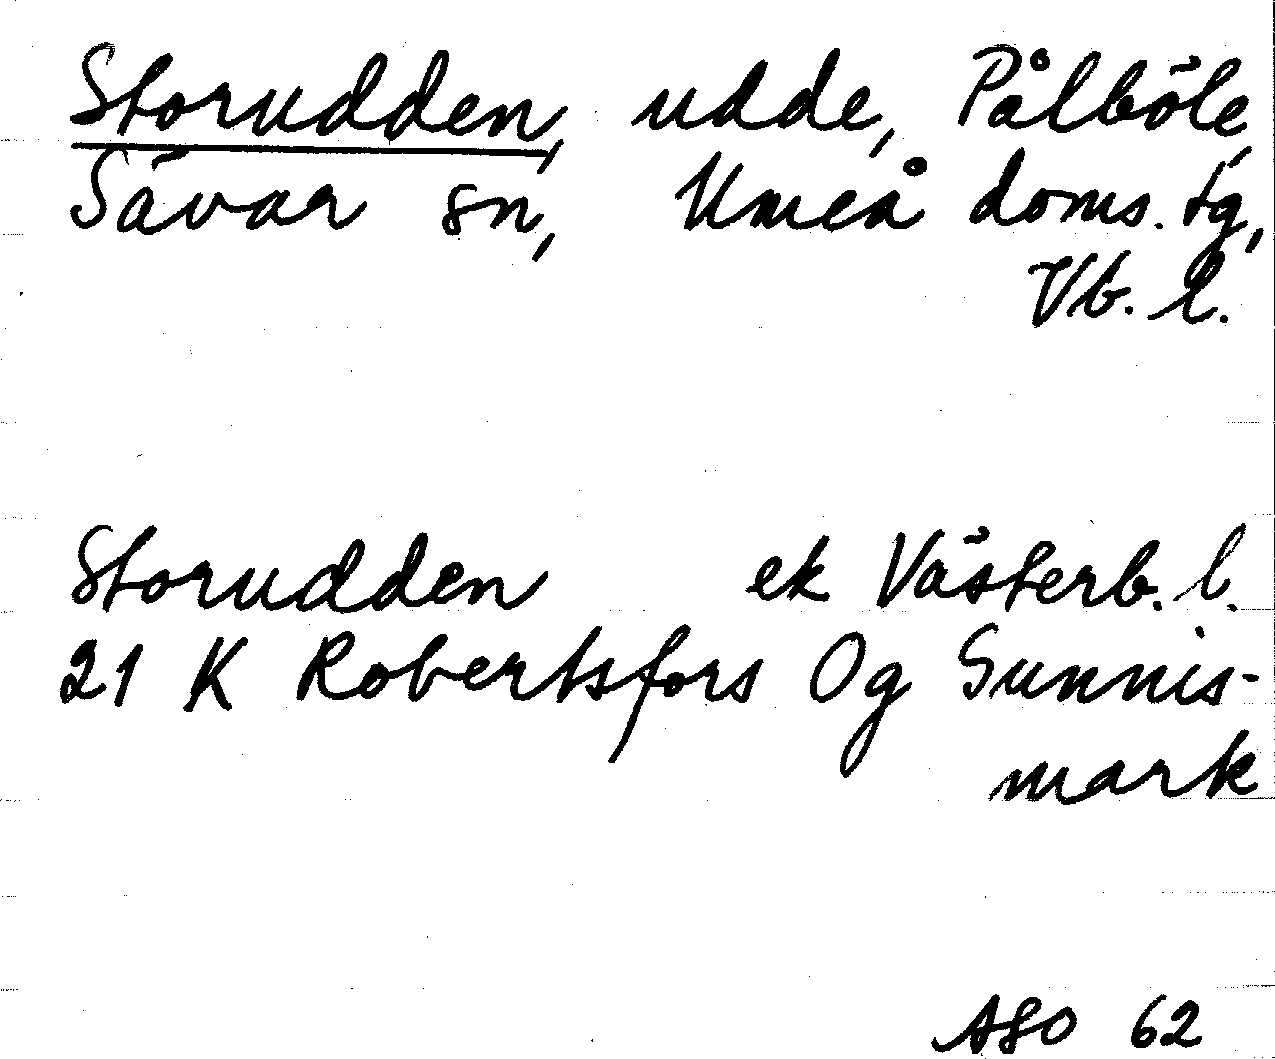 Storudden, udde, Pålböle,
Sävar sn, Umeå doms. tg,
Vb. l.
Storudden ek Västerb. l.
21 K Robertsfors Og Sunnis-
mark
ASO 62